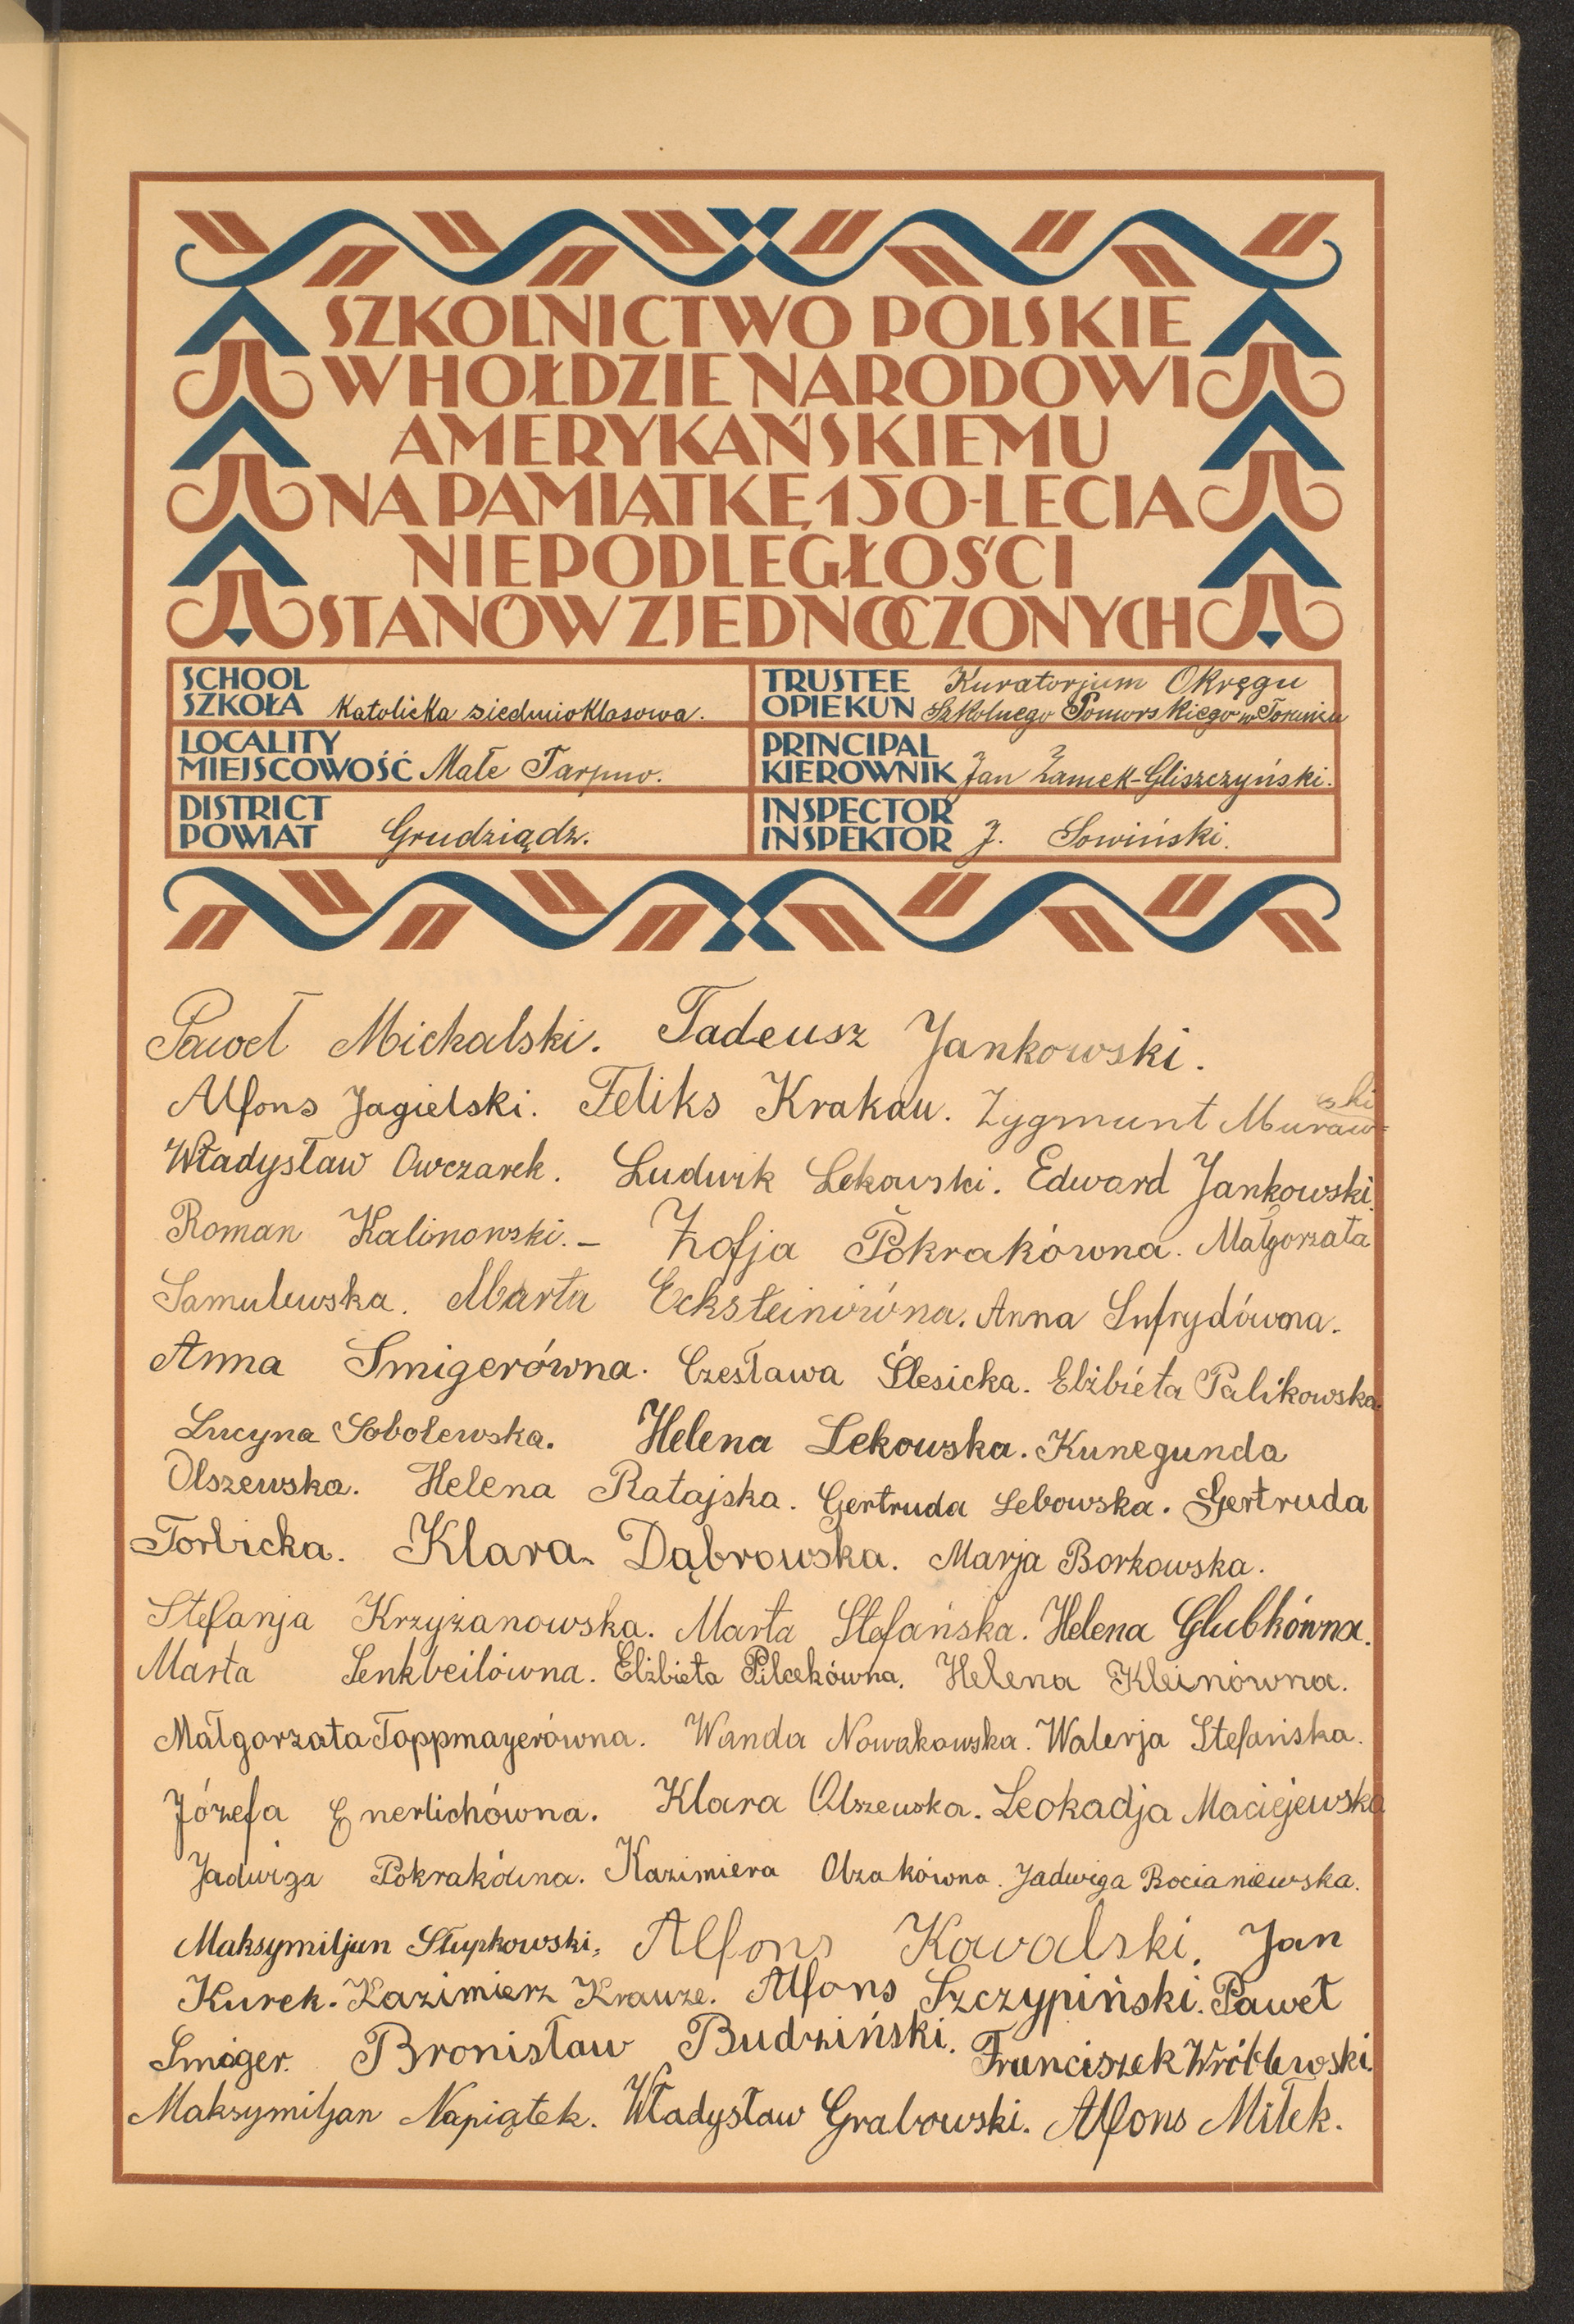 SZKOLNICTWO POLSKIE
W HOŁDZIE NARODOWI
AMERYKAŃSKIEMU
NA PAMIĄTKĘ 150-LECIA
NIEPODLEGŁOŚCI
STANÓW ZJEDNOCZONYCH
SCHOOL
SZKOŁA Katolicka siedmioklasowa.
TRUSTEE Kuratorjum Okręgu
OPIEKUN Szkolnego Pomorskiego w Toruniu
LOCALITY
MIEJSCOWOŚĆ Małe Tarpno.
PRINCIPAL
KIEROWNIK Jan Żamek-Gliszczyński.
DISTRICT
POWIAT Grudziądz.
INSPECTOR
INSPEKTOR J. Sowiński.
Paweł Michalski. Tadeusz Jankowski.
Alfons Jagielski. Feliks Krakau. Zygmunt Muraw-
ski
Władysław Owczarek. Ludwik Lekowski. Edward Jankowski.
Roman Kalinowski.- Zofja Pokrakówna. Małgorzata
Samulewska. Marta Ecksteinówna. Anna Sufrydówna.
Anna Smigerówna. Czesława Ślesicka. Elżbiéta Palikowska.
Lucyna Sobolewska. Helena Lekowska. Kunegunda
Olszewska. Helena Ratajska. Gertruda Lebowska. Gertruda
Torbicka. Klara Dąbrowska. Marja Borkowska.
Stefanja Krzyżanowska. Marta Stefańska. Helena Glubkówna.
Marta Senkbeilówna. Elżbieta Pilcekówna. Helena Kleinówna.
Małgorzata Toppmayerówna. Wanda Nowakowska. Walerja Stefańska.
Józefa Enerlichówna. Klara Olszewska. Leokadja Maciejewska
Jadwiga Pokrakówna. Kazimiera Olzakówna. Jadwiga Bocianiewska.
Maksymiljan Słupkowski, Alfons Kowalski. Jan
Kurek. Kazimierz Krauze. Alfons Szczypiński. Paweł
Smiger. Bronisław Budziński. Franciszek Wróblewski.
Maksymiljan Napiątek. Władysław Grabowski. Alfons Miłek.